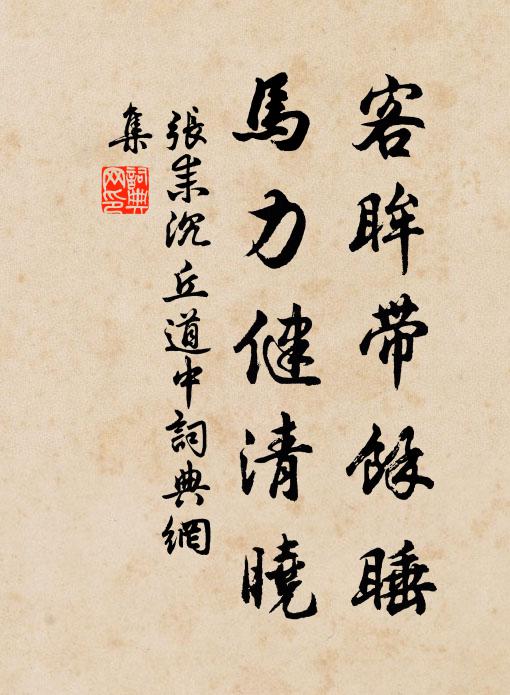 客眸帶餘睡
馬力健清曉
張耒沉丘道中詞典網
集
詞典網印